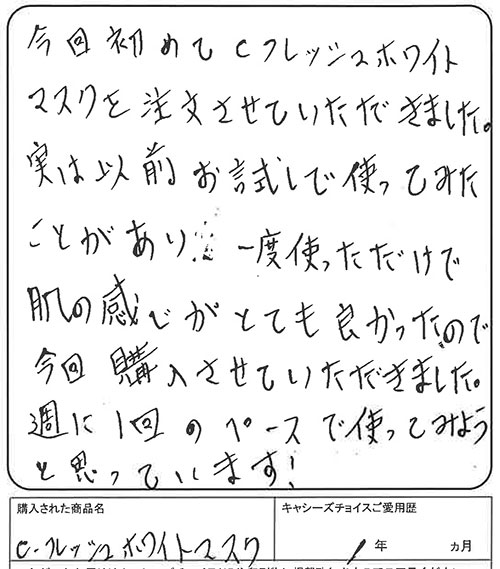 今回初めてCフレッシュホワイト
マスクを注文させていただきました。
実は以前お試しで使ってみた
ことがあり 一度使っただけで
肌の感じがとても良かったので
今回購入させていただきました。
週に1回のペースで使ってみよう
と思っています!
購入された商品名 キャシーズチョイスご愛用歴
C-フレッシュホワイトマスク 1年 ヵ月